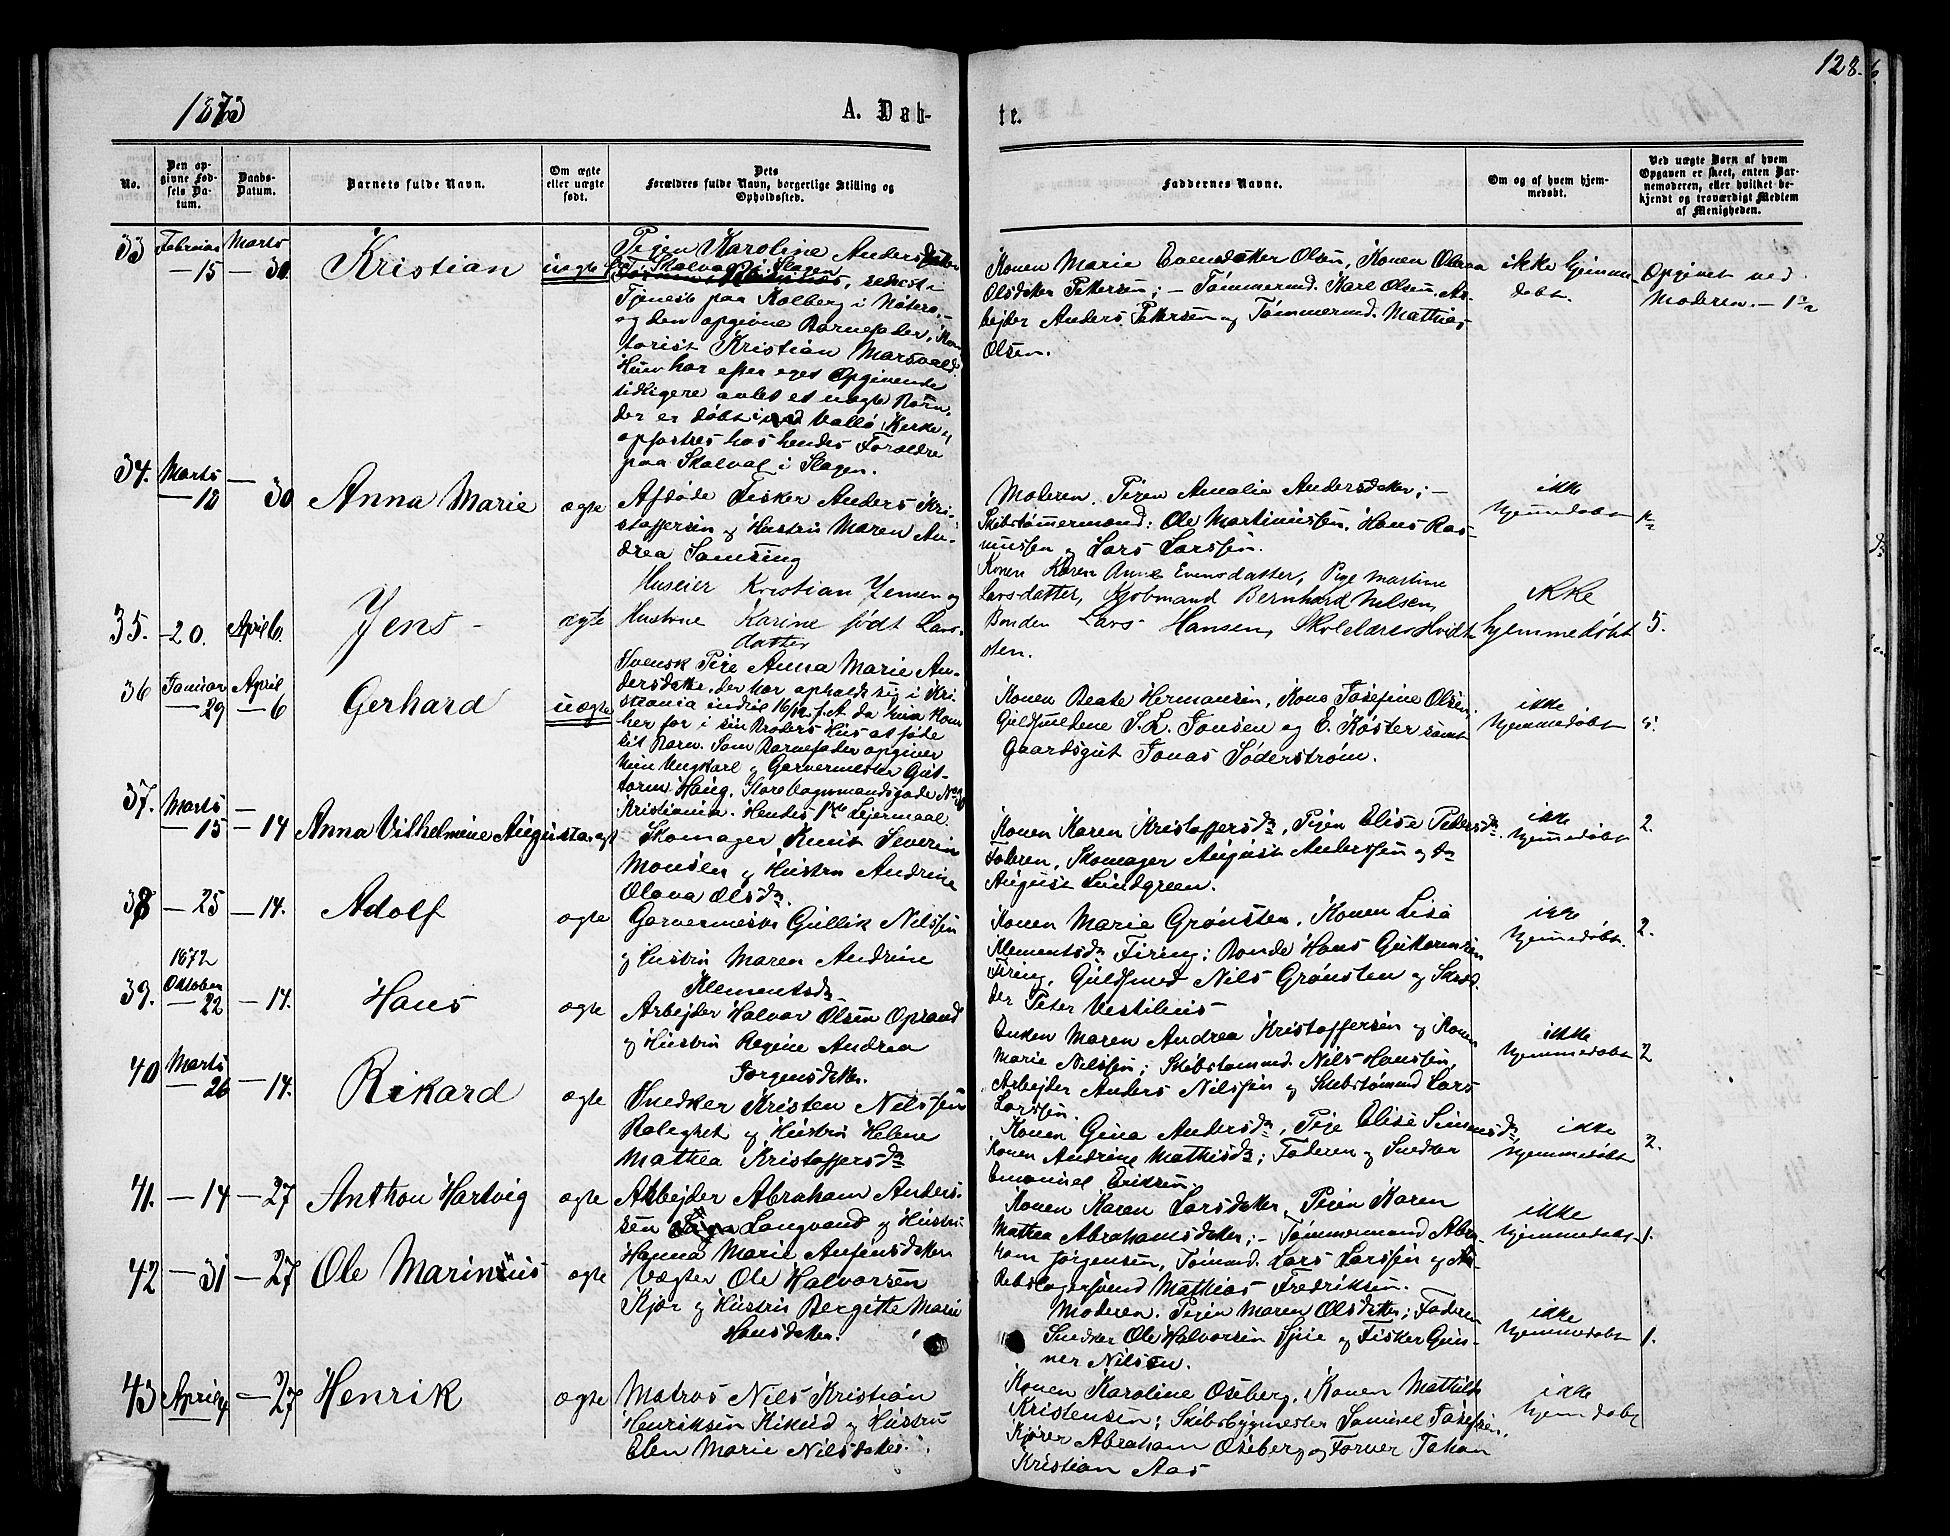 128.
1873
A. Dåb-
te.
No.
Den op-
givne Fød-
sels Da-
tum.
Daabs-
Datum.
Barnets fulde Navn.
Om ægte
eller uægte
født.
Dets
Forældres fulde Navn, borgerlige Stilling og
Opholdssted.
Faddernes Navne.
Om og af hvem hjem-
medøbt.
Ved uægte Børn af hvem
Opgaven er skeet, enten Bar-
nemoderen, eller hvilket be-
kjendt og troværdigt Medlem
af Menigheden.
33 Februar 15 Marts 30. Kristian uægte
Pigen Karoline Andersdatter
Skalvag i Slagen
senest i
Tjeneste paa Kolberg i Nøterø,
og den opgivne Barnefader, Kon
torist Kristian Marsvald.
Hun har efter eget Opgivende
tidligere avlet et uægte Barn,
der er døbt i Vallø Kirke og
opfostres hos hendes Forældre
paa Skalval i Slagen.
Konen Marie Evensdatter Olsen, Konen Olava
Olsdatter Pettersen; - Tømmermd. Karl Olsen, Ar-
bejder Anders Petersen og Tømmermd. Mathias
Olsen.
ikke hjemme
døbt.
Opgivet ved
Moderen. -
34. Marts 18 - 30 Anna Marie ægte
Afdøde Fisker Anders Kri-
stoffersen og Hustru Maren An-
drea Samsing
Moderen, Pigen Amalie Andersdatter; -
Skibstømmermænd: Ole Martiniussen, Hans Ras-
mussen og Lars Larssen.
ikke
hjemmedøbt
35. - 20. April 6. Jens - ægte
Huseier Kristian Jensen og
Hustrue Karine født Lars-
datter
Konen Karen Anne Evensdatter, Pige Martine
Larsdatter, Kjøbmand Bernhard Nelsen,
Bonden Lars Hansen, Skolelærer Hvidt
sten.
ikke
hjemmedøbt
5.
36 Januar 29 April 6 Gerhard uægte
Svensk Pige Anna Marie An-
dersdatter, der har opholdt sig i Kri-
stiania indtil 16/12 f. A. da hun kom
her for i sin Broders Hus at føde
sit Barn. Som Barnefader opgiver
hun Ungkarl og Garvermester Gut-
torm Haug, Store Vognmandsgade No
Kristiania. Hendes 1ste Lejermaal.
Konen Beate Hermansen, Kone Josefine Olsen,
Guldsmedene S. L. Jonsen og E. Køster samt
Gaardsgut Jonas Søderstrøm.
ikke
hjemmedøbt
5.
37. Marts 15 - 14 Anna Vilhelmine Augusta ægte
Skomager Knut Severin
Monsen og Hustru Andrine
Olava Olsdtr
Konen Karen Kristoffersdtr, Pigen Elise Petersdtr
Faderen, Skomager August Anderssen og do
August Lundgreen.
ikke
hjemmedøbt
2.
38 - 25 - 14. Adolf ægte
Garvermester Gullik Nilssen
og Hustru Maren Andrine
Klementsdtr
Konen Marie Grønsten, Konen Lisa
Klementsdtr Firing; Bonde Hans Guttormsen
Firing, Guldsmed Nils Grønsten og Skræd
der Peter Vestilius
ikke
hjemmedøbt.
2.
39. 1872 Oktober 22 - 14. Hans ægte
Arbejder Halvar Olsen Oprand
og Hustru Regine Andrea
Jørgensdatter.
Enken Maren Andrea Kristoffersen og Konen
Marie Nilssen; Skibstømmd. Nils Hanssen,
Arbejder Anders Nilssen og Skibstømmd Lars
Larssen.
ikke
hjemmedøbt
2
40 Marts 26 - 14. Rikard ægte
Snedker Kristen Nilssen
Rolighet og Hustru Helene
Mathea Kristoffersdtr
Konen Gina Andersdtr, Pige Elise Simensdtr,
Konen Andrine Mathisdtr; Faderen og Snedker
Emanuel Eriksen.
ikke
hjemmedøbt
2.
41. - 14 - 27 Anthon Hartvig ægte
Arbejder Abraham Anders-
sen Langvand og Hustru
Hanna Marie Anfinsdatter
Konen Karen Larsdatter, Pigen Karen
Mathea Abrahamsdatter; - Tømmermand Abra-
ham Jørgensen, Tømmd. Lars Larssen og
Rebslagersvend Mathias Fredriksen.
ikke
hjemmedøbt
1.
42 - 31 - 27 Ole Marinius ægte
Vægter Ole Halvorsen
Kjær og Hustru Bergitte Marie
Hansdatter.
Moderen, Pigen Maren Olsdatter; Faderen
Snedker Ole Halvorsen og Fisker Gun-
ner Nilsen.
ikke
hjemmedøbt
1.
43 April 4 - 27 Henrik ægte
Matros Nils Kristian
Henriksen Kikud og Hustru
Elen Marie Nilsdatter.
Konen Karoline Oseberg, Konen Mathilde
Kristensen; Skibsbygmester Samuel Josefsen,
Kjører Abraham Oseberg og Farver Johan
Kristian Aas
ikke
hjemmedøbt